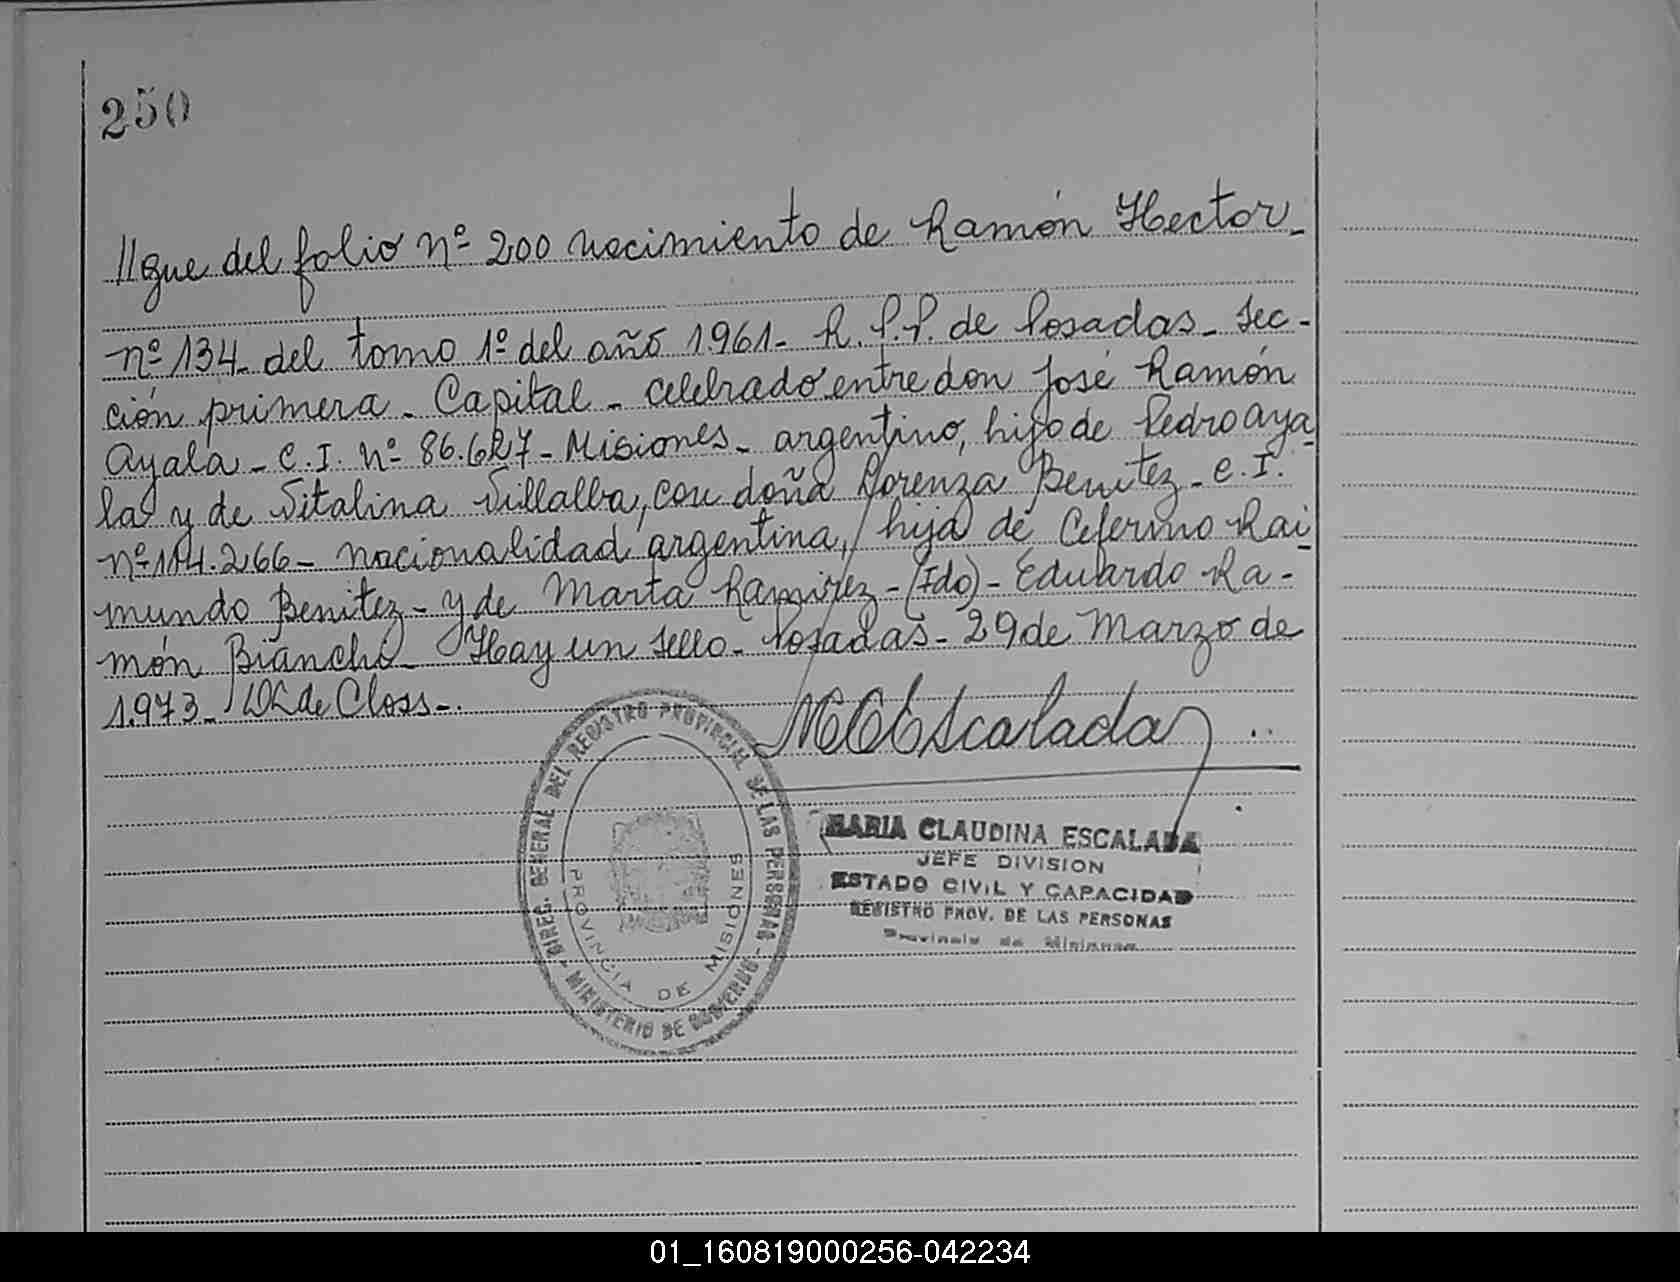 250
//gue del folio Nº 200 nacimiento de Ramón Hector_
nº 134_ del tomo 1º del año 1961_ R.P.P. de Posadas_ Sec-
ción primera_ Capital_ celebrado entre don José Ramón
Ayala_ C.I. Nº 86.627_ Misiones_ argentino, hijo de Pedro Aya_
la y de Vitalina Villalba, con doña Lorenza Benitez_ C.I.
nº 114.266_ nacionalidad argentina, hija de Ceferino Rai_
mundo Benitez_ y de Marta Ramirez_ (Fdo)_ Eduardo Ra-
món Bianchi_ Hay un sello_ Posadas_ 29 de Marzo de
1.973_ de Closs_.
MCEscalada
DIREC. GENERAL DEL REGISTRO PROVINCIAL DE LAS PERSONAS - MINISTERIO DE GOBIERNO -
PROVINCIA DE MISIONES
MARIA CLAUDINA ESCALADA
JEFE DIVISION
ESTADO CIVIL Y CAPACIDAD
REGISTRO PROV. DE LAS PERSONAS
Provincia de Misiones
01_160819000256-042234